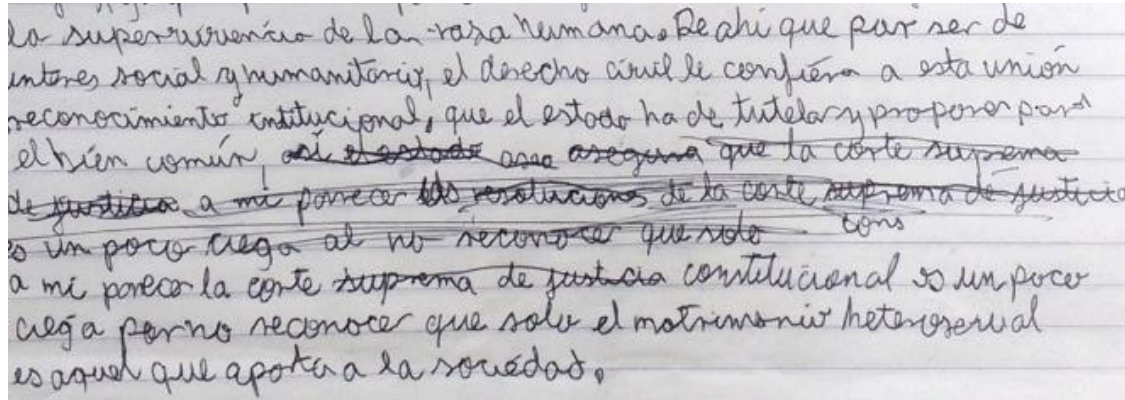 la supervivencia de la raza humana. De ahí que por ser de
interes social y humanitario, el derecho civil le confiera a esta unión
reconocimiento intitucional, que el estado ha de tutelar y proponer para
el bién común, así el estado asea asegura que la corte suprema
de justicia a mi parecer las resoluciones de la corte suprema de justicia
es un poco ciega al no reconocer que solo cons
a mi parecer la corte suprema de justicia constitucional es un poco
ciega por no reconocer que solo el matrimonio heterosexual
es aquel que aporta a la sociedad.